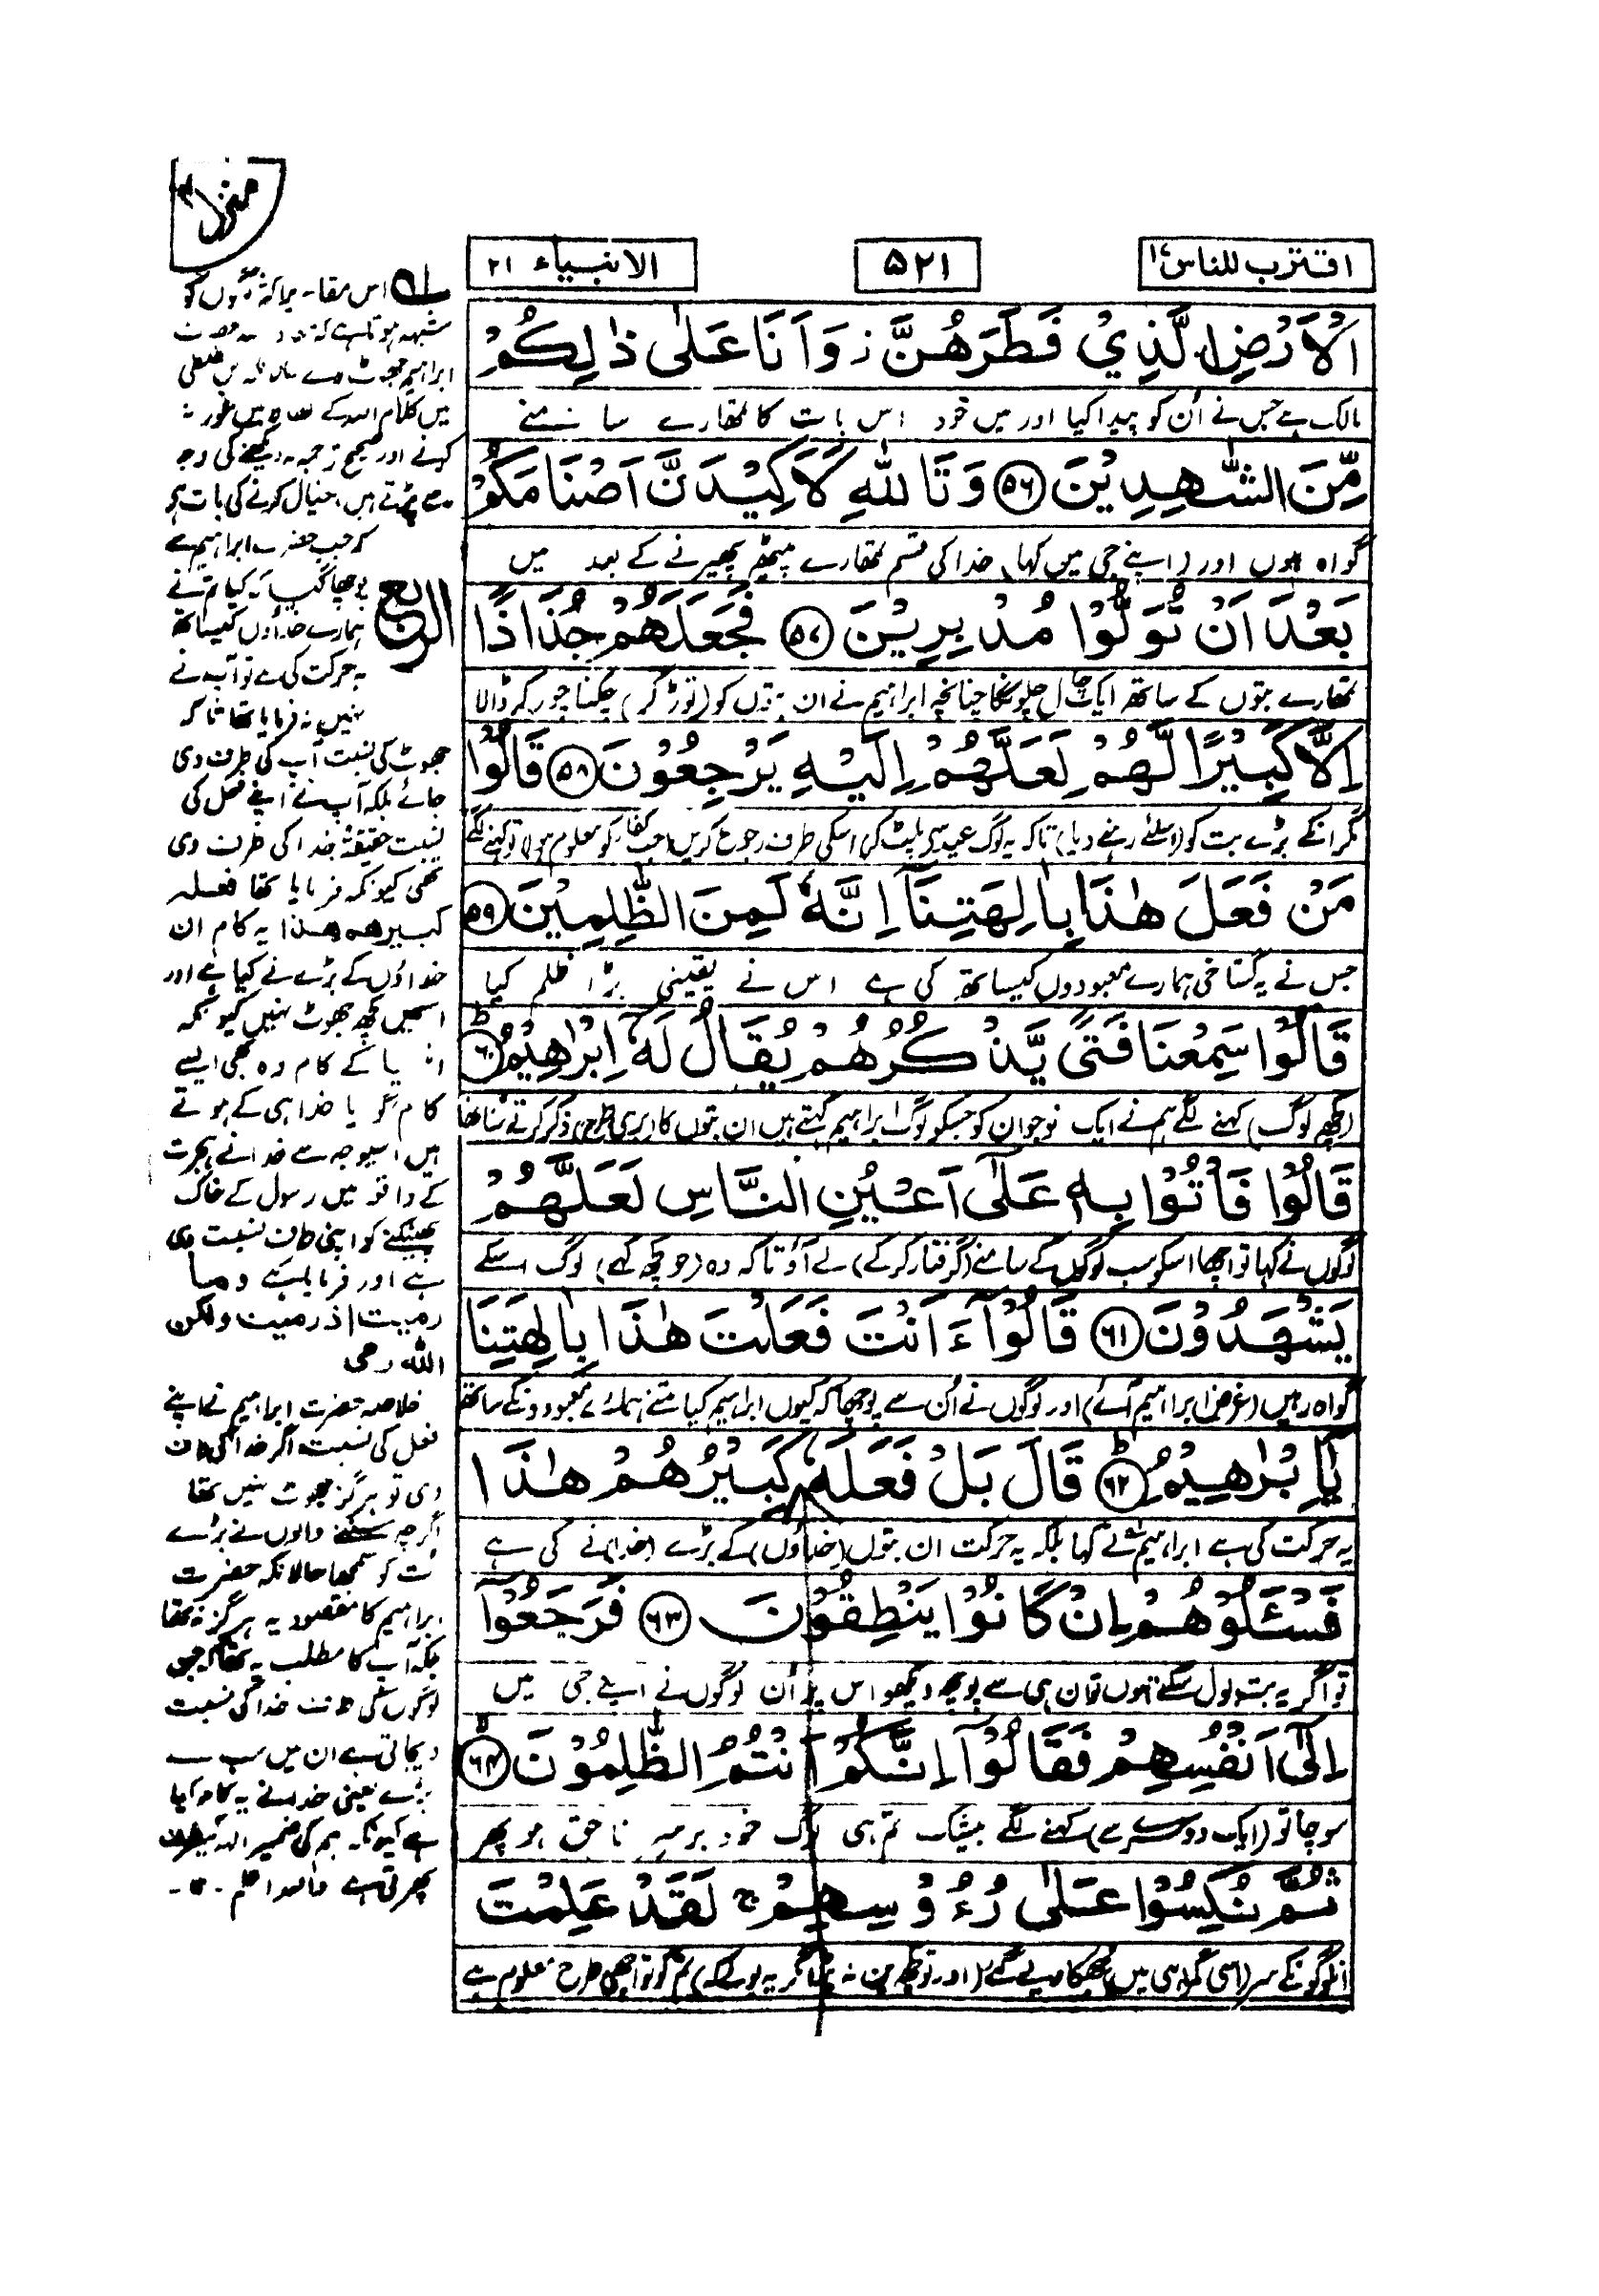 منزل
اقترب للناس ۱۷
۵۲۱
الانبیاء ۲۱
الْاَرْضِ الَّذِيْ فَطَرَهُنَّ ز وَاَنَا عَلٰى ذٰلِكُمْ
مالک ہے جس نے اُن کو پیدا کیا اور میں خود اس بات کا تمھارے سامنے
مِّنَ الشّٰهِدِيْنَ ۵۶ وَتَاللّٰهِ لَاَكِيْدَنَّ اَصْنَامَكُمْ
گواہ ہوں اور (اپنے جی میں کہا) خدا کی قسم تمھارے پیٹھ پھیرنے کے بعد میں
بَعْدَ اَنْ تُوَلُّوْا مُدْبِرِيْنَ ۵۷ فَجَعَلَهُمْ جُذَاذًا
تمھارے بتوں کے ساتھ ایک چال چلونگا چنانچہ ابراہیم نے ان بتوں کو (توڑ کر) چکنا چور کر ڈالا
اِلَّا كَبِيْرًا لَّهُمْ لَعَلَّهُمْ اِلَيْهِ يَرْجِعُوْنَ ۵۸ قَالُوْا
مگر انکے بڑے بت کو (اسلئے رہنے دیا) تاکہ یہ لوگ عید سے پلٹ کر اسکی طرف رجوع کریں (جب کفار کو معلوم ہوا) تو کہنے لگے
مَنْ فَعَلَ هٰذَا بِاٰلِهَتِنَآ اِنَّهٗ لَمِنَ الظّٰلِمِيْنَ ۵۹
جس نے یہ گستاخی ہمارے معبودوں کیساتھ کی ہے اس نے یقینی بڑا ظلم کیا
قَالُوْا سَمِعْنَا فَتًى يَّذْكُرُهُمْ يُقَالُ لَهٗٓ اِبْرٰهِيْمُ ۶۰ ط
(کچھ لوگ) کہنے لگے ہم نے ایک نوجوان کو جسکو لوگ ابراہیم کہتے ہیں ان بتوں کا (بری طرح) ذکر کرتے سُنا تھا
قَالُوْا فَاْتُوْا بِهٖ عَلٰٓى اَعْيُنِ النَّاسِ لَعَلَّهُمْ
لوگوں نے کہا تو اچھا اسکو سب لوگوں کے سامنے (گرفتار کرکے) لے آؤ تاکہ وہ (جو کچھ کہے) لوگ اسکے
يَشْهَدُوْنَ ۶۱ قَالُوْٓا ءَاَنْتَ فَعَلْتَ هٰذَا بِاٰلِهَتِنَا
گواہ رہیں (غرض ابراہیم آئے) اور لوگوں نے اُن سے پوچھا کہ کیوں ابراہیم کیا تمنے ہمارے معبودونکے ساتھ
يٰٓاِبْرٰهِيْمُ ۶۲ ط قَالَ بَلْ فَعَلَهٗ كَبِيْرُهُمْ هٰذَا
یہ حرکت کی ہے ابراہیم نے کہا بلکہ یہ حرکت ان بتوں (خداؤں) کے بڑے (خدا) نے کی ہے
فَسْـَٔلُوْهُمْ اِنْ كَانُوْا يَنْطِقُوْنَ ۶۳ فَرَجَعُوْٓا
تو اگر یہ بت بول سکتے ہوں تو ان ہی سے پوچھ دیکھو اس پر اُن لوگوں نے اپنے جی میں
اِلٰٓى اَنْفُسِهِمْ فَقَالُوْٓا اِنَّكُمْ اَنْتُمُ الظّٰلِمُوْنَ ۶۴ لا
سوچا تو (ایک دوسرے سے) کہنے لگے بیشک تم ہی لوگ خود برسر ناحق ہو پھر
ثُمَّ نُكِسُوْا عَلٰى رُءُوْسِهِمْ ج لَقَدْ عَلِمْتَ
ان لوگونکے سر (اسی گمراہی میں) جھکا دیے گئے (اور تو کچھ بن نہ پڑا مگر یہ بولے کہ) تم کو تو اچھی طرح معلوم ہے
الربع
لے اس مقام پر اکثر لوگوں کو
شبہہ ہوتا ہے کہ
ابراہیم جھوٹ
میں کلام اللہ کے میں غور نہ
کرنے اور صحیح ترجمہ نہ دیکھنے کی وجہ
سے پڑتے ہیں، خیال کرنے کی بات ہے
کہ جب حضرت ابراہیم سے
پوچھا گیا کہ کیا تم نے
ہمارے خداؤں کیساتھ
یہ حرکت کی ہے تو آپ نے
نہیں نہ فرمایا تھا تاکہ
جھوٹ کی نسبت آپ کی طرف دی
جائے بلکہ آپ نے اپنے فعل کی
نسبت حقیقۃً خدا کی طرف دی
تھی کیونکہ فرمایا تھا فعلہ
کبیرھم ھذا یہ کام ان
خداؤں کے بڑے نے کیا ہے اور
اسمیں کچھ جھوٹ نہیں کیونکہ
کے کام وہ بھی ایسے
کام گویا خدا ہی کے ہوتے
ہیں اسیوجہ سے خدا نے ہجرت
کے واقعہ میں رسول کے خاک
پھینکنے کو اپنی طرف نسبت دی
ہے اور فرمایا ہے وما
رمیت اذ رمیت ولکن
اللہ رمی
خلاصہ حضرت ابراہیم نے اپنے
فعل کی نسبت اگر خدا کی طرف
دی تو ہرگز جھوٹ نہیں تھا
اگرچہ سننے والوں نے بڑے
بت کو سمجھا حالانکہ حضرت
ابراہیم کا مقصود یہ ہرگز نہ تھا
بلکہ آپ کا مطلب یہ تھا کہ جن
لوگوں کی طرف خدا کی نسبت
دیجاتی ہے ان میں سب سے
بڑے یعنی خدا نے یہ کام کیا
ہے کیونکہ ہم کی ضمیر الہہ کیطرف
پھرتی ہے واللہ اعلم